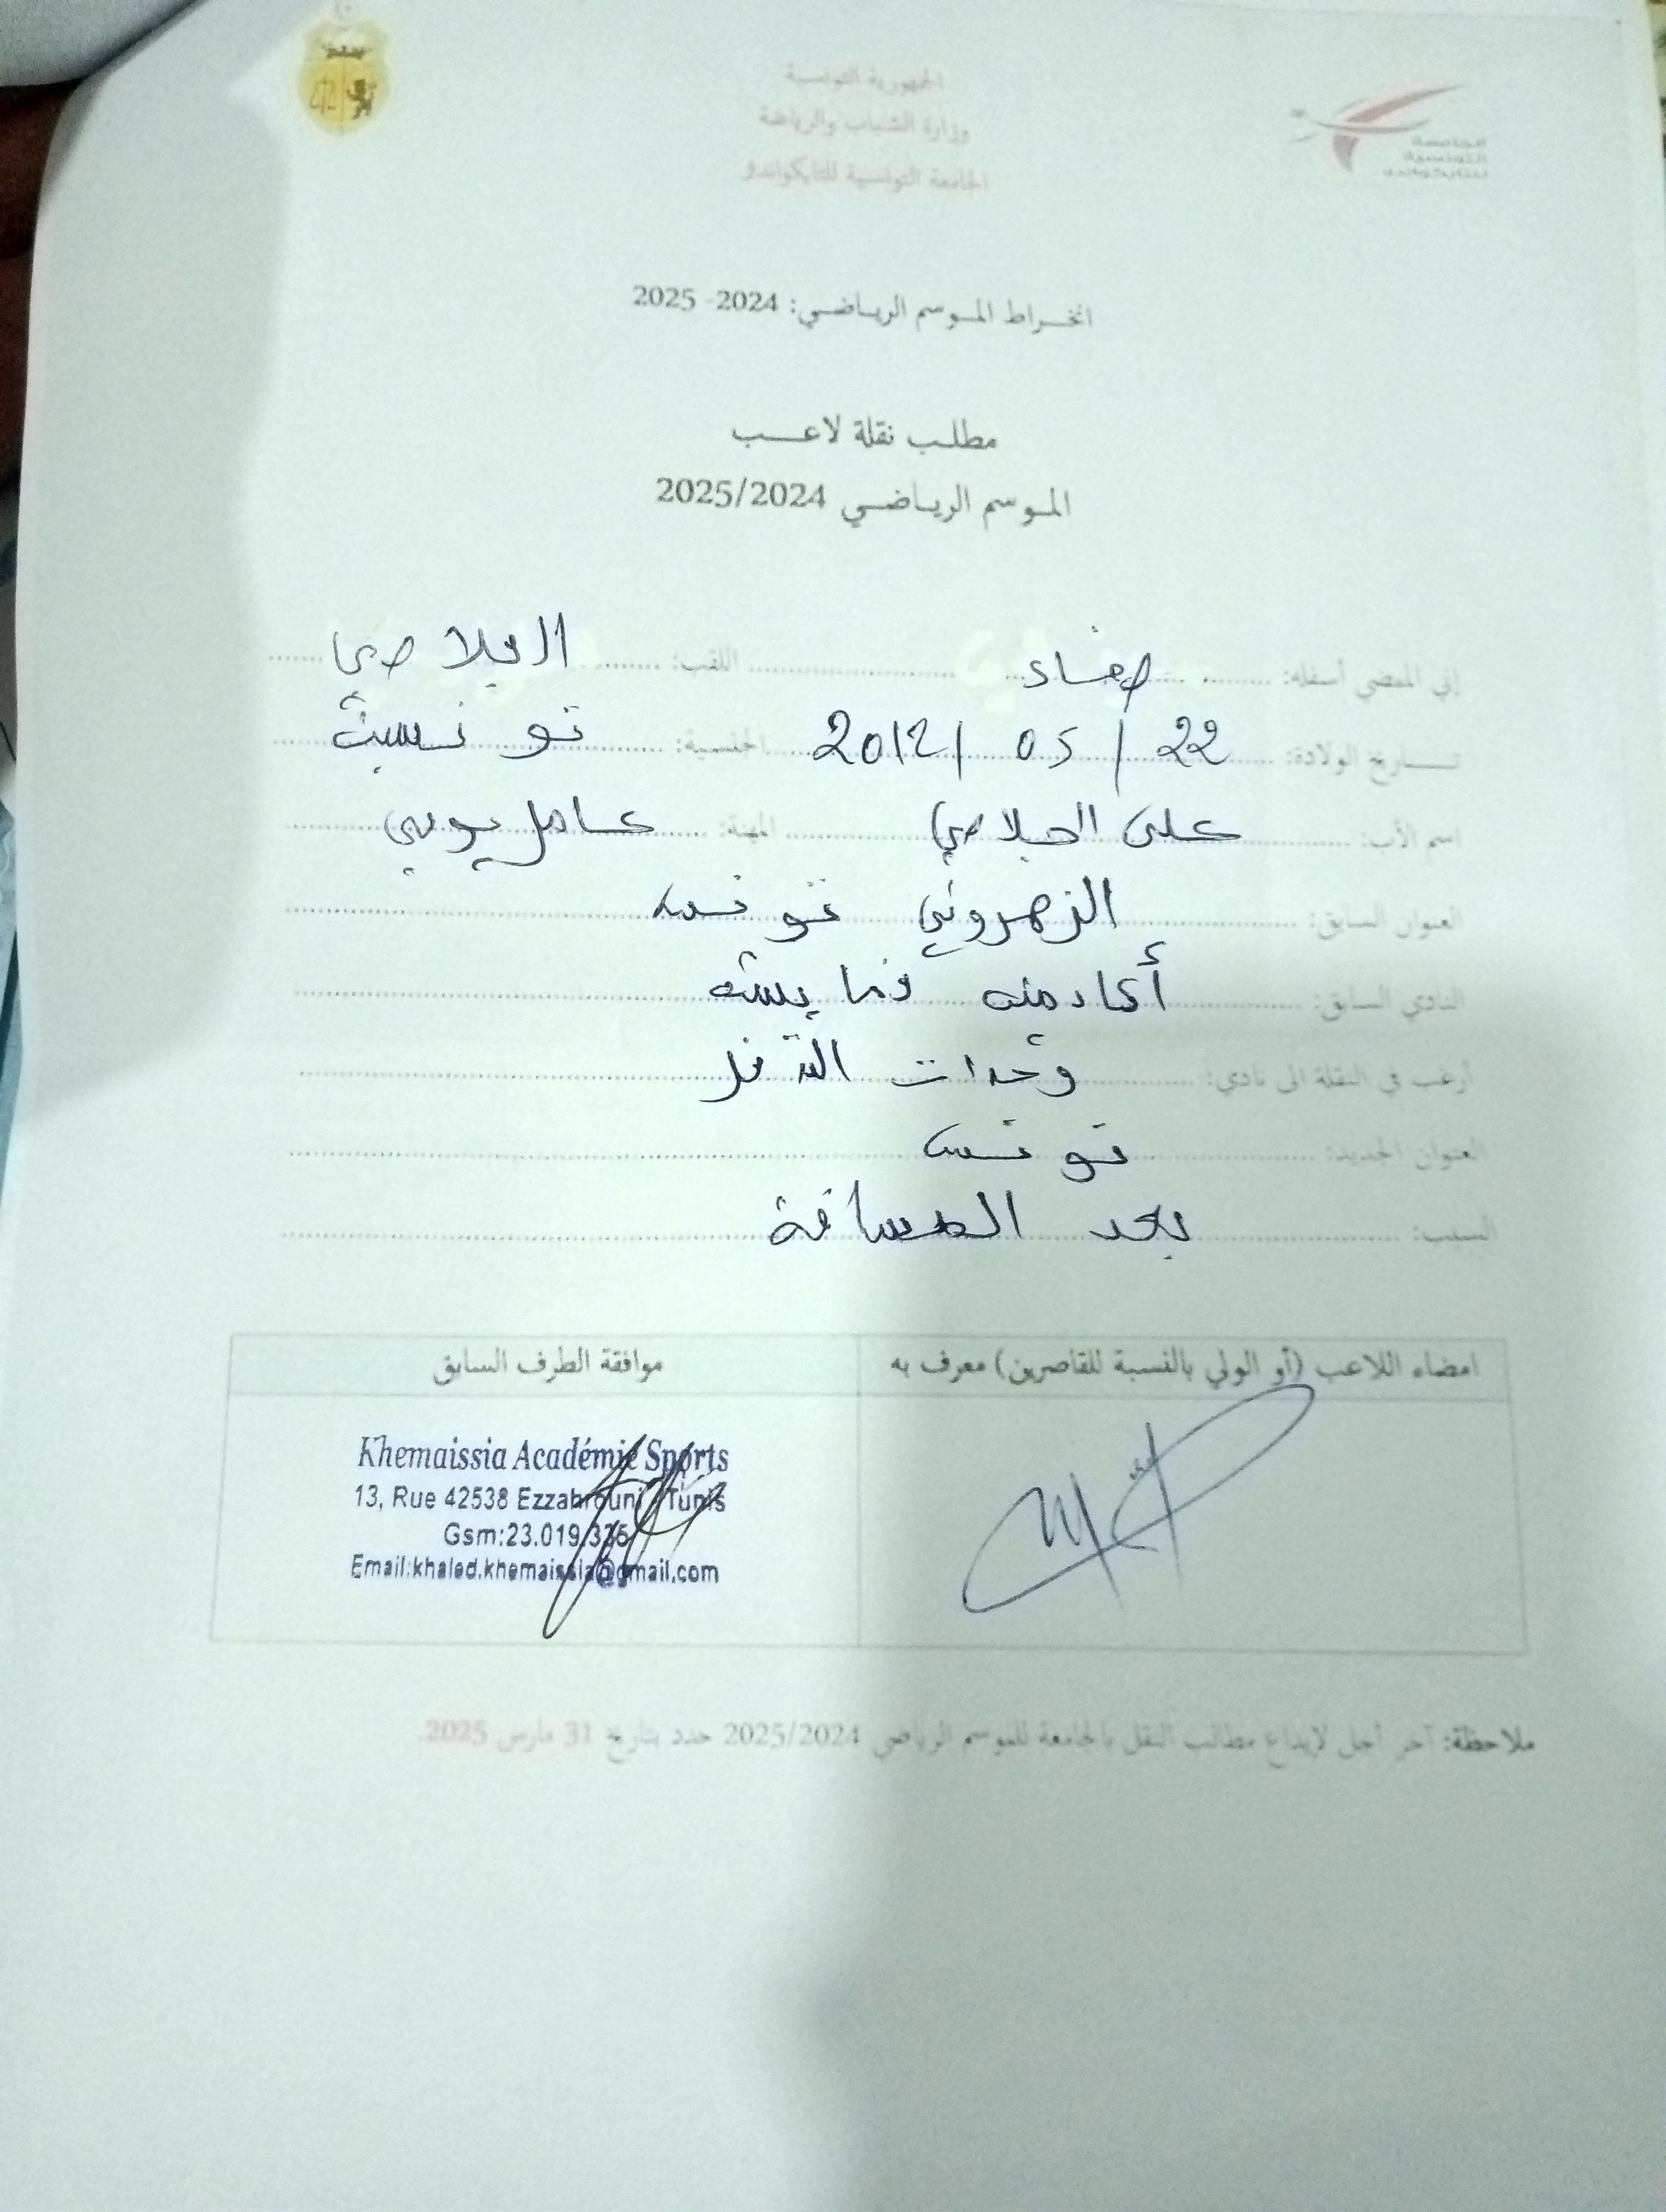 الجمهورية التونسية
وزارة الشباب والرياضة
الجامعة التونسية للتايكواندو
الجامعة
التونسية
للتايكواندو
انخراط الموسم الرياضي: 2024- 2025
مطلب نقلة لاعب
الموسم الرياضي 2025/2024
إني الممضي أسفله: صفاء اللقب:
تاريخ الولادة: 22 / 05 / 2012 الجنسية: تونسية
اسم الأب: علي الجلاصي المهنة: عامل يومي
العنوان السابق: الزهروني تونس
النادي السابق:
أرغب في النقلة الى نادي: وحدات
العنوان الجديد: تونس
السبب: بعد المسافة
امضاء اللاعب (أو الولي بالنسبة للقاصرين) معرف به
موافقة الطرف السابق
Khemaissia Académie Sports
13, Rue 42538 Ezzahrouni - Tunis
Gsm:23.019.335
Email:khaled.khemaissia@gmail.com
ملاحظة: آخر أجل لإيداع مطالب النقل بالجامعة للموسم الرياضي 2025/2024 حدد بتاريخ 31 مارس 2025.